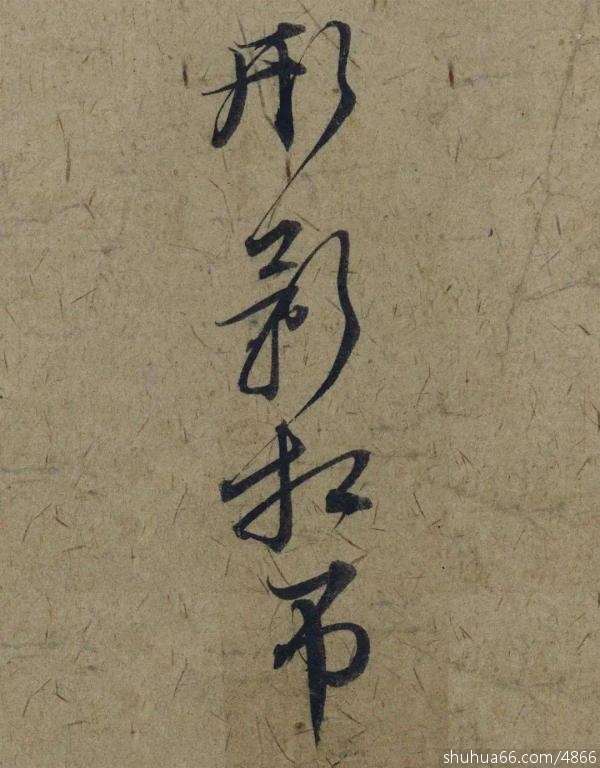 形影相弔
shuhua66.com/4866